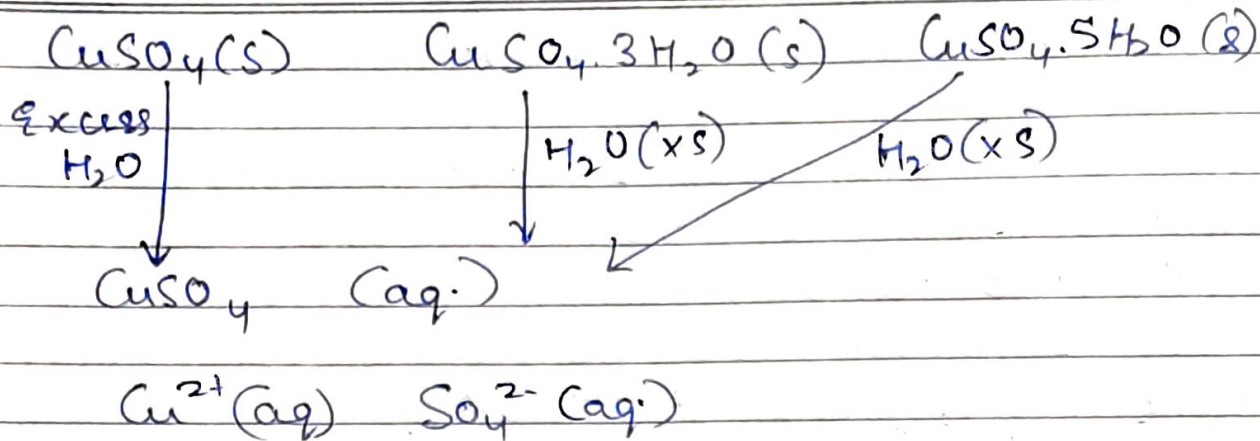 CuSO₄(S) CuSO₄.3H₂O (s) CuSO₄.5H₂O (s)
Excess
H₂O H₂O(xs) H₂O(xs)
CuSO₄ (aq.)
Cu²⁺(aq) SO₄²⁻ (aq.)